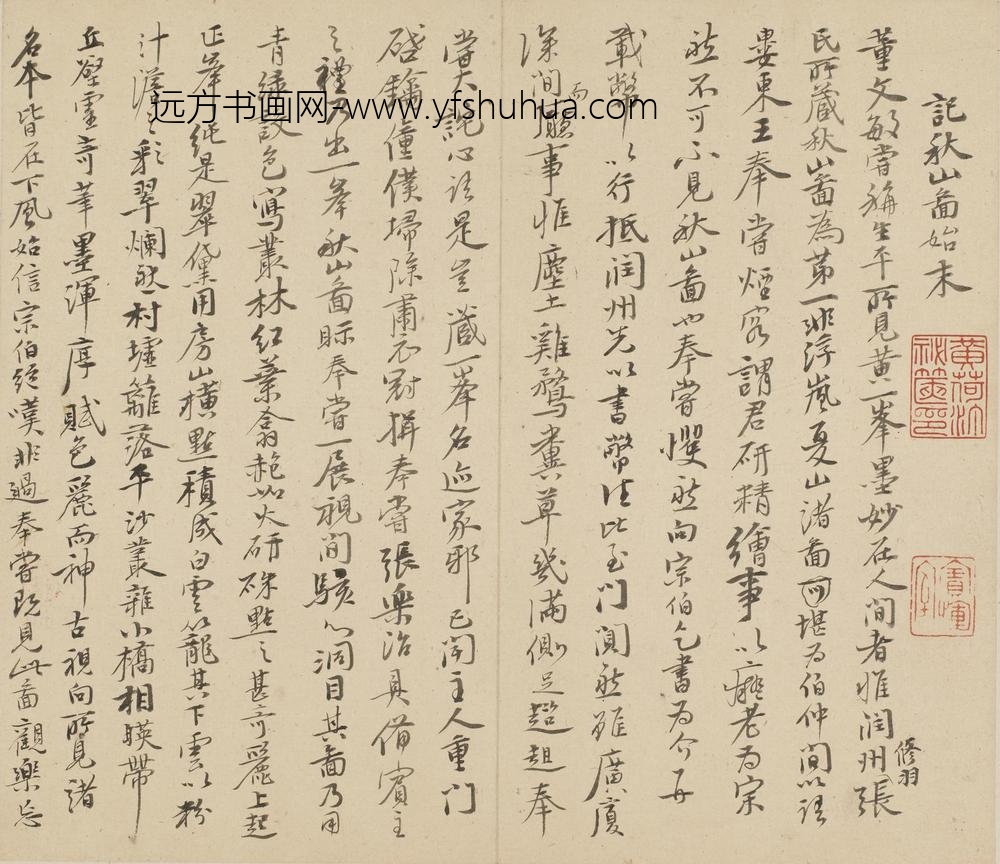 記秋山啚始末
董文敏嘗稱生平所見黃一峯墨妙在人間者惟潤州張
修羽
氏所藏秋山啚為第一非浮嵐夏山諸啚可堪為伯仲間以語
婁東王奉嘗煙客謂君研精繪事以癡老為宗
然不可不見秋山啚也奉嘗戄然向宗伯乞書為介并
載幣以行抵潤州先以書幣往比至門闃然雖廣廈
深間而廳事惟塵土雞鶩糞草幾滿側足趑趄奉
嘗大詫心語是豈藏一峯名迹家邪已聞主人重門
啟鑰僮僕掃除肅衣冠揖奉嘗張樂治具備賓主
之禮乃出一峯秋山啚眎奉嘗一展視間駭心洞目其啚乃用
青綠設色寫叢林紅葉翕赩如火研硃點之甚奇麗上起
正峯純是翠黛用房山橫點積成白雲籠其下雲以粉
汁澹之彩翠爛然村墟籬落平沙叢雜小橋相暎帶
丘壑靈奇筆墨渾厚賦色麗而神古視向所見諸
名本皆在下風始信宗伯絕嘆非過奉嘗既見此啚觀樂忘
遠方书画网-www.yfshuhua.com